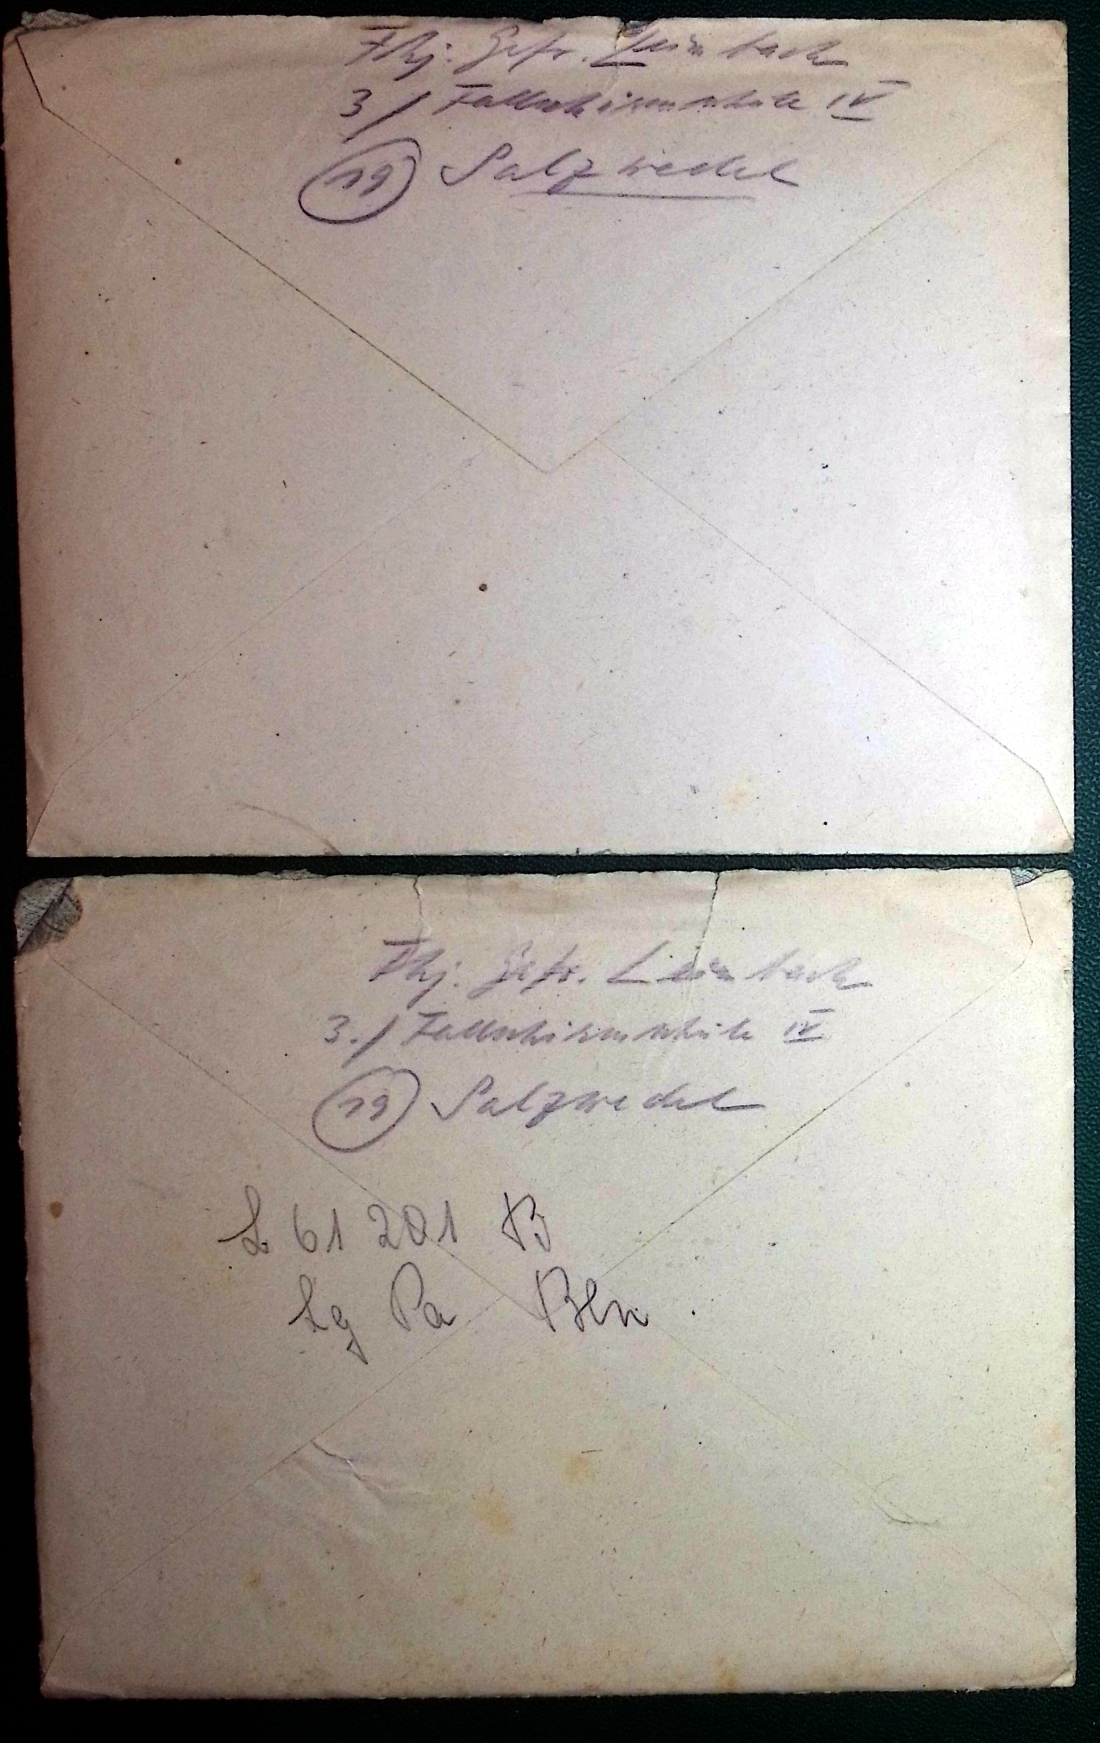 Fhj. Gefr. Leimbach
3/ Fallschirmschule IV
19 Salzwedel
Fhj. Gefr. Leimbach
3./ Fallschirmschule IV
19 Salzwedel
L 61 201 B
Lg Pa Bln.